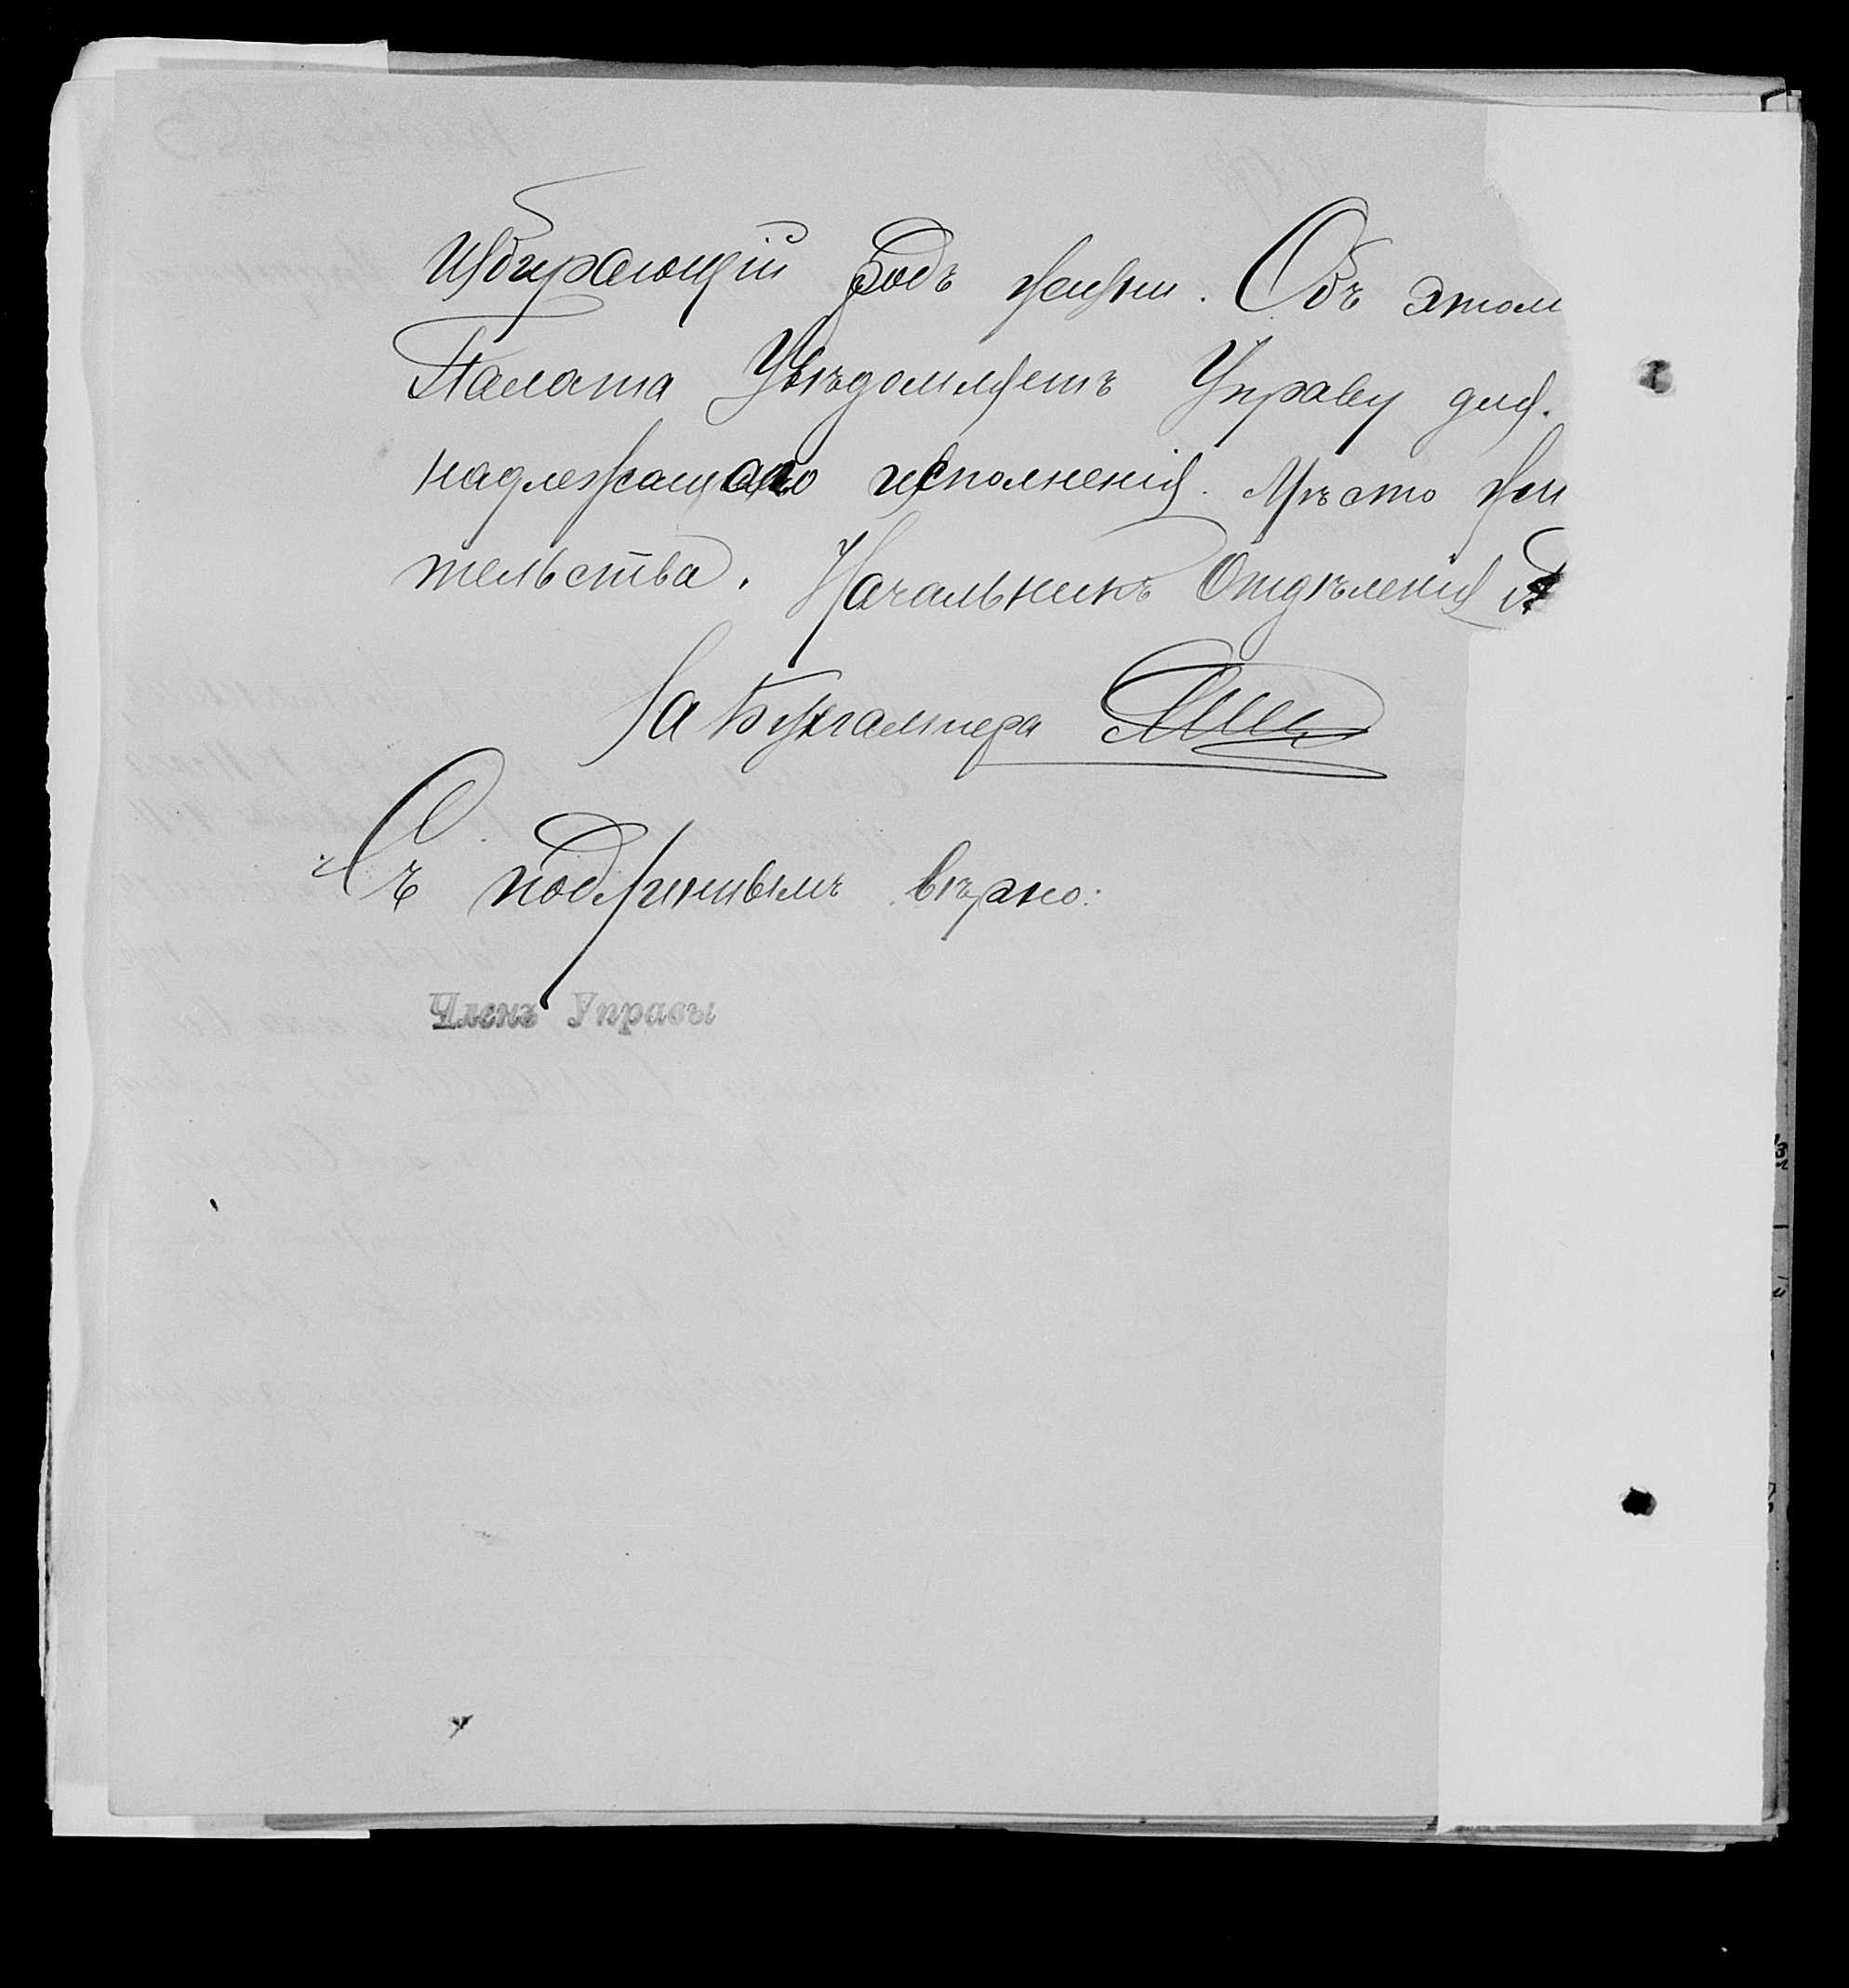 избирающій родъ жизни. Объ этом
Палата Увѣдомляетъ Управу для
надлежащаго исполненія. Мѣсто жи
тельства. Начальникъ Отдѣленія
За Бухгалтера
Съ подлиннымъ вѣрно:
Членъ Управы